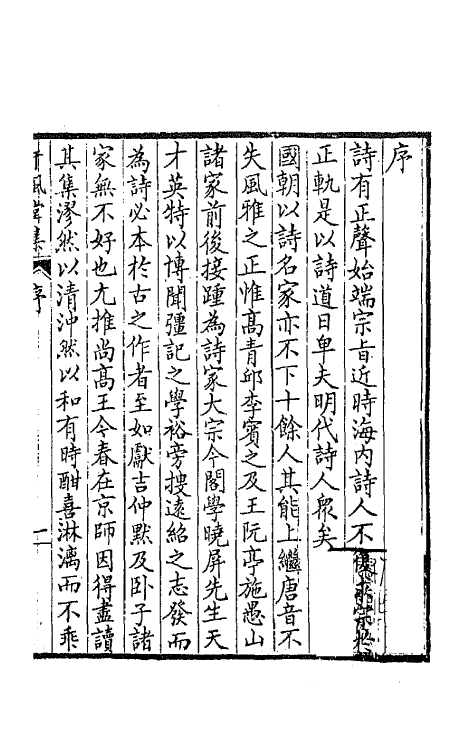 序
詩有正聲始端宗㫖近時海内詩人不
正軌是以詩道日卑夫明代詩人衆矣
國朝以詩名家亦不下十餘人其能上繼唐音不
失風雅之正惟髙青邱李賓之及王阮亭施愚山
諸家前後接踵為詩家大宗今閣學曉屏先生天
才英特以博聞彊記之學裕旁搜遠紹之志發而
為詩必本於古之作者至如獻吉仲黙及卧子諸
家無不好也尤推尚髙王今春在京師因得盡讀
其集漻然以清沖然以和有時酣喜淋漓而不乖
風箏集
序
一